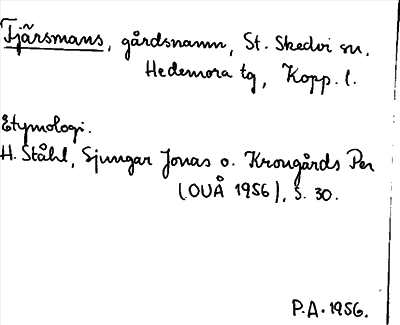 Tjärsmans, gårdsnamn, St. Skedvi sn.
Hedemora tg, Kopp. l.
Etymologi.
H. Ståhl, Sjungar Jonas o. Krongårds Per
(OUÅ 1956), s. 30.
P.A. 1956.